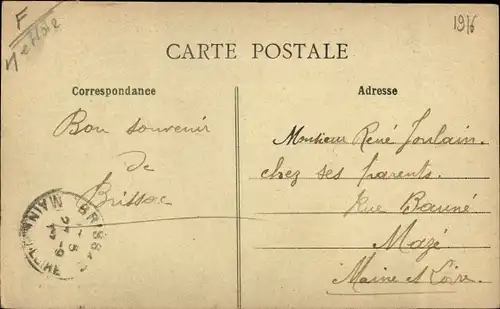 F
1916
CARTE POSTALE
Correspondance
Adresse
Bon souvenir
de
Brissac
Monsieur René Joulain
chez ses parents.
Rue Bauné
Mazé
Maine et Loire
BRISSAC
MAINE ET LOIRE